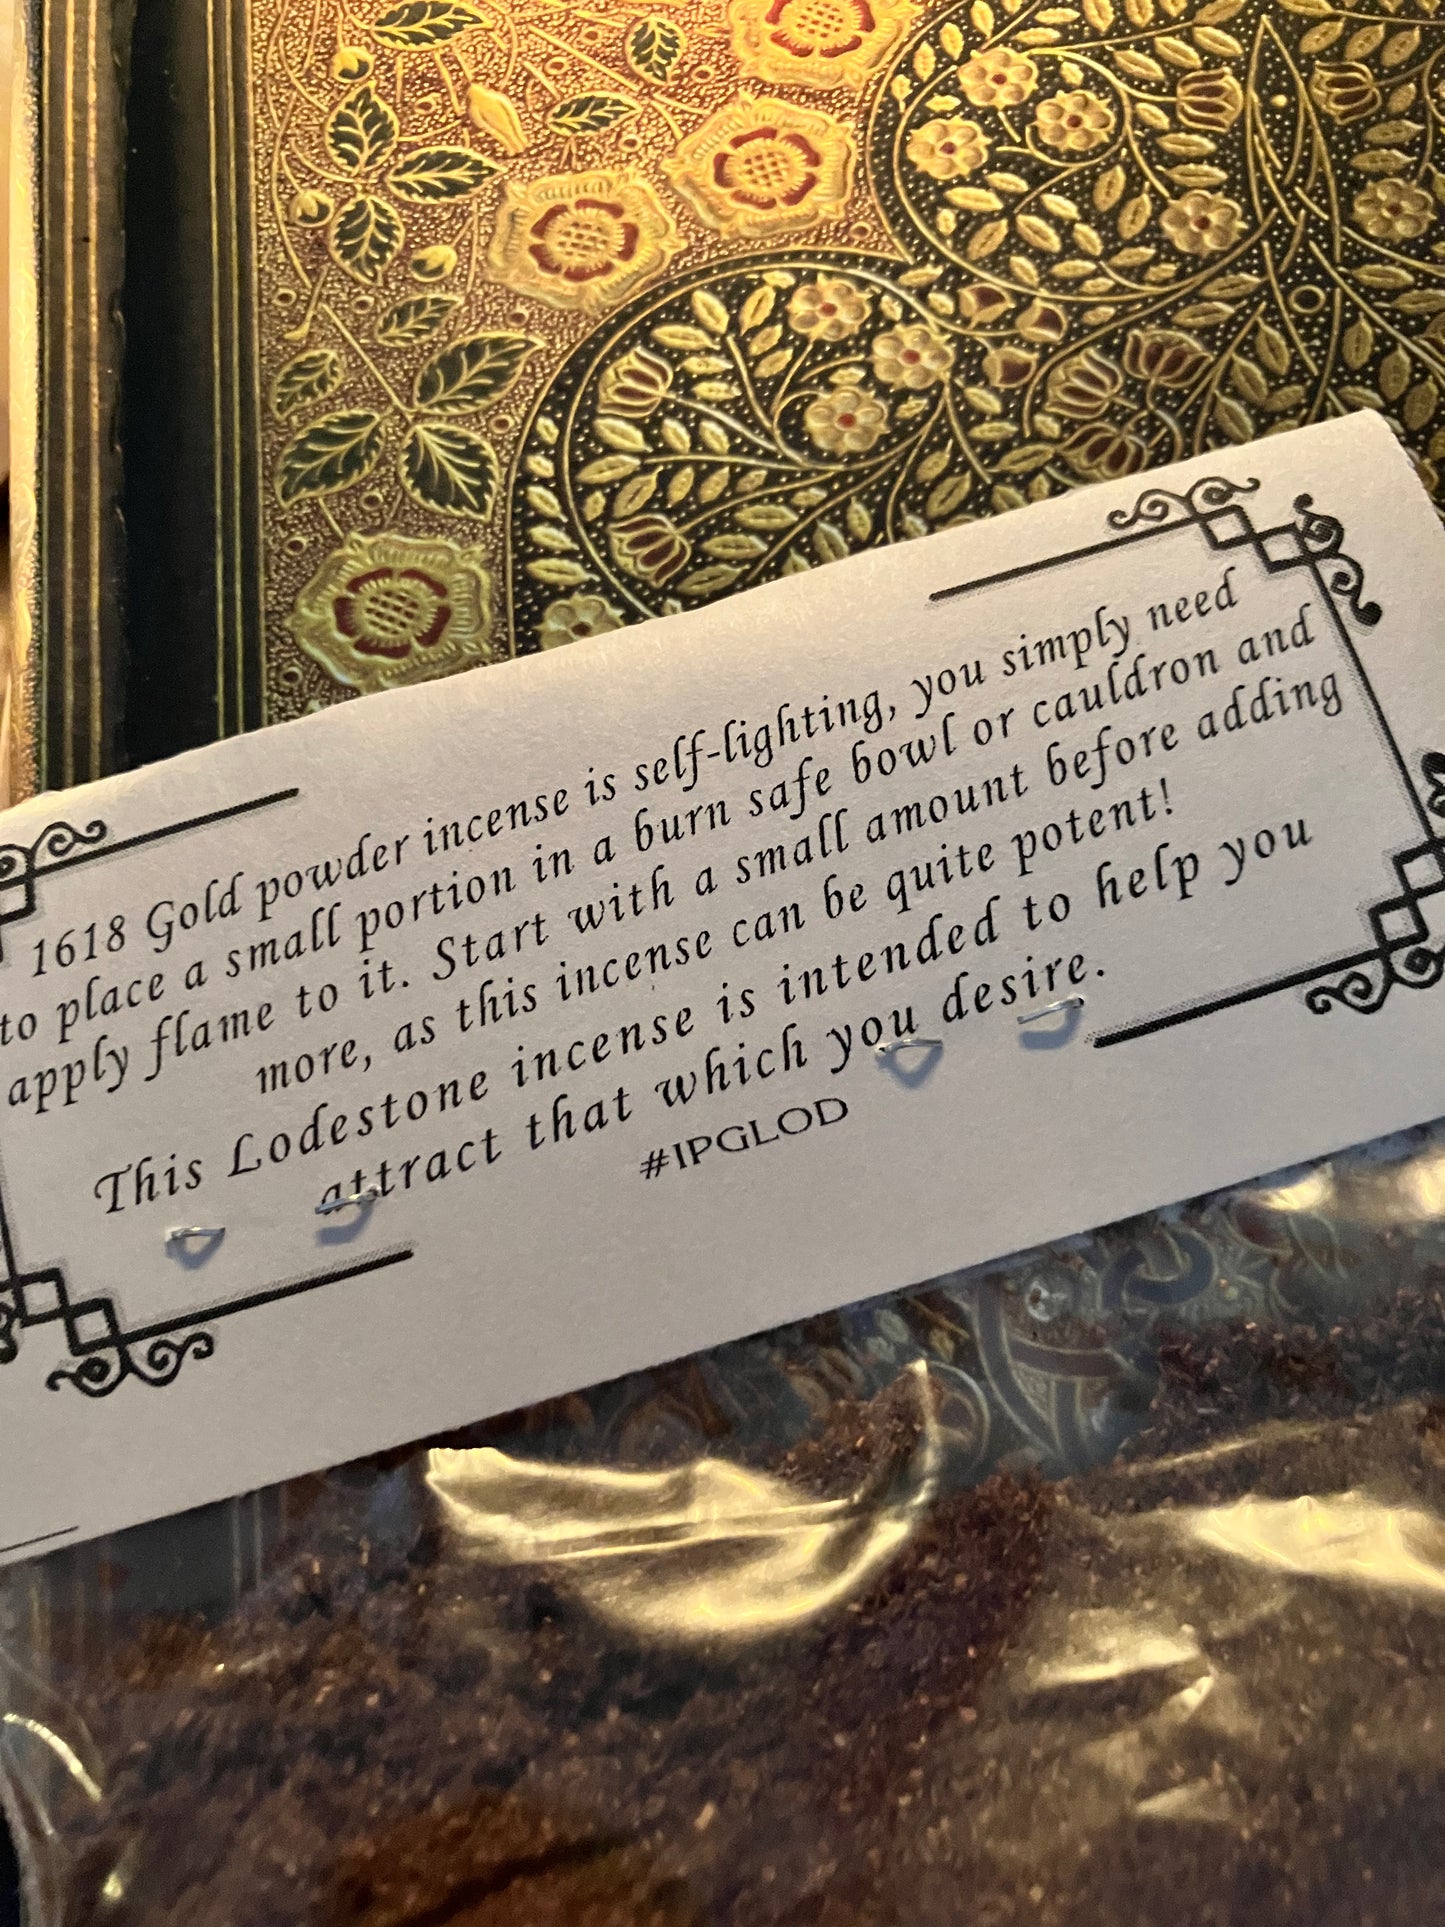 1618 Gold powder incense is self-lighting, you simply need
to place a small portion in a burn safe bowl or cauldron and
apply flame to it. Start with a small amount before adding
more, as this incense can be quite potent!
This Lodestone incense is intended to help you
attract that which you desire.
#IPGLOD